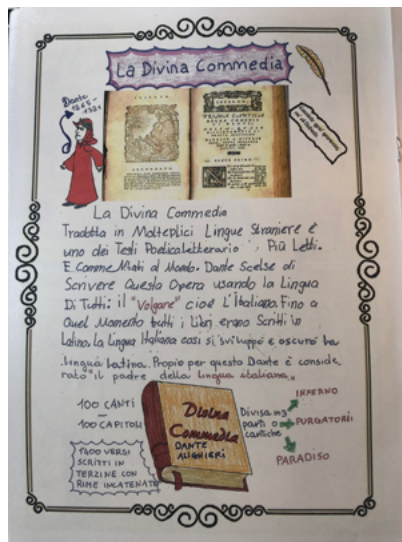 La Divina Commedia
Dante
1265-
1321
La Divina Commedia
Tradotta in Molteplici Lingue Straniere è
uno dei Testi Poetica letterario, Più Letti.
E Comme Ntati al Mondo. Dante Scelse di
Scrivere Questa Opera usando la Lingua
Di Tutti: il "Volgare" cioè L'Italiano. Fino a
Quel Momento tutti i Libri erano Scritti in
Latino. La Lingua Italiana così si sviluppò e oscurò la
lingua Latina. Propio per questo Dante è conside
rato "il padre della lingua italiana"
100 CANTI
100 CAPITOLI
1400 VERSI
SCRITTI IN
TERZINE CON
RIME INCATENATO
Divina
Commedia
DANTE
ALIGHIERI
Divisa in 3
parti o
cantiche
INFERNO
PURGATORIO
PARADISO